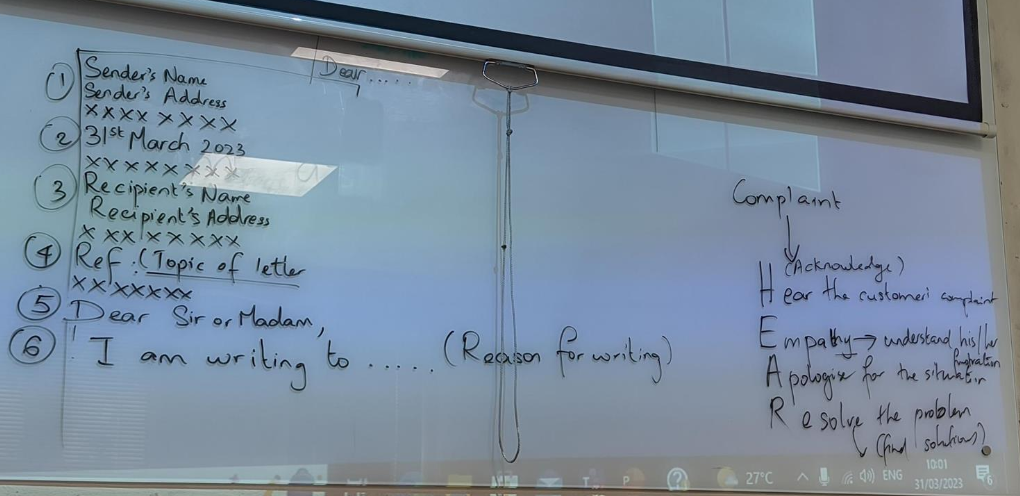 Dear.....
① Sender's Name
Sender's Address
xxxx xxxx
② 31st March 2023
xxxxxxxx
③ Recipient's Name
Recipient's Address
x xx xxxxx
④ Ref : (Topic of letter
xxxxxxx
⑤ Dear Sir or Madam,
⑥ I am writing to ..... (Reason for writing)
Complaint
(Acknowledge)
Hear the customer's complaint
Empathy → understand his/her
frustration
Apologise for the situation
Resolve the problem
(find solutions)
27°C
ENG
10:01
31/03/2023
6